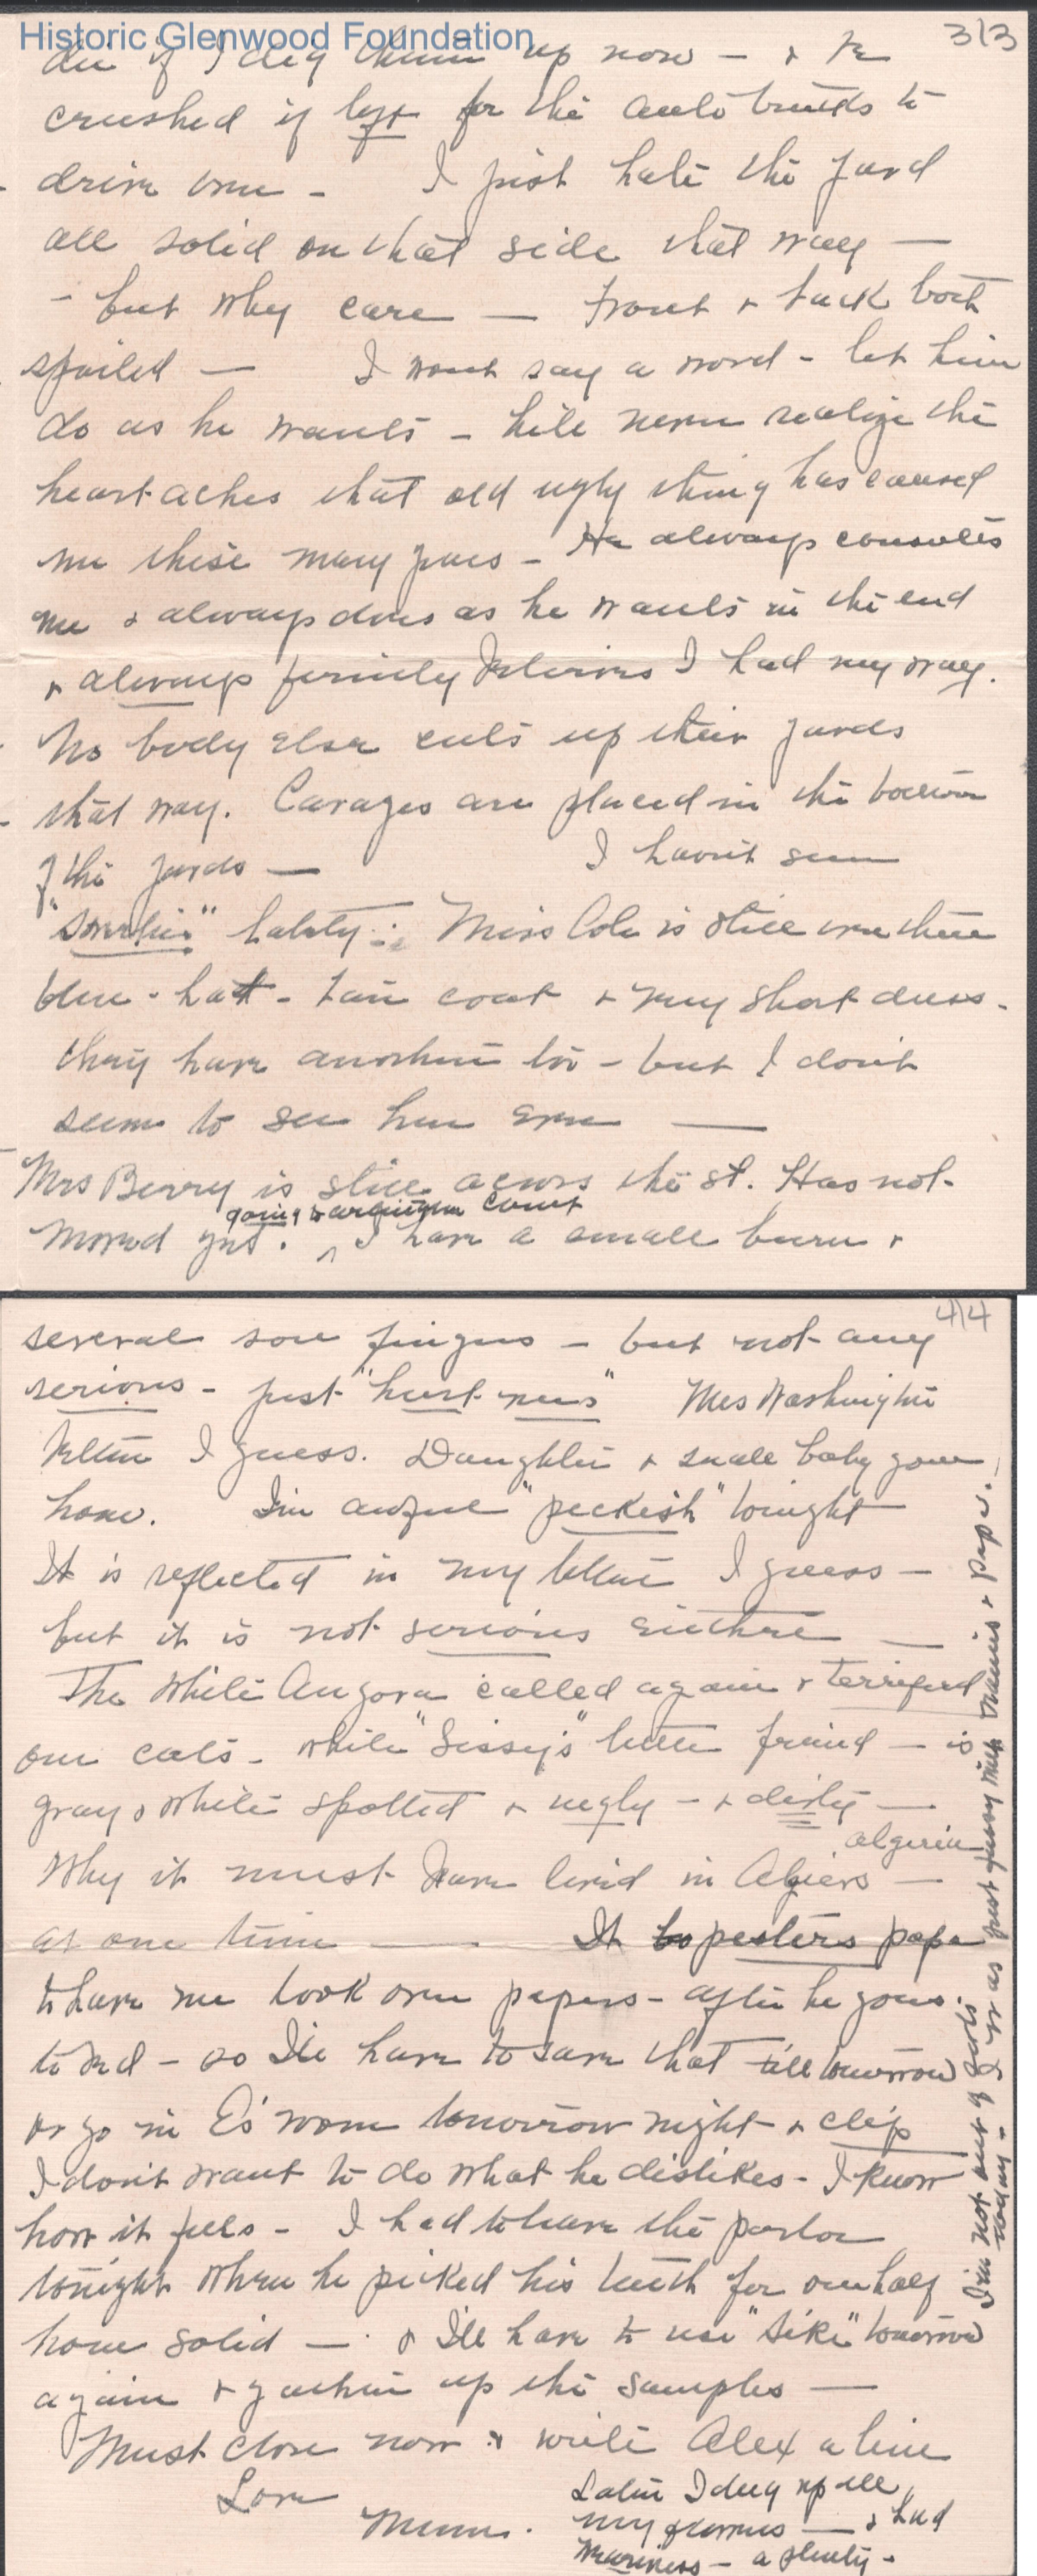 Historic Glenwood Foundation
3|3
die if I dig them up now - & be
crushed if left for the auto trucks to
drive over - I just hate the yard
all solid on that side that way -
- but why care - Front & back both
spoiled - I wont say a word - let him
do as he wants - he'll never realize the
heart aches that old ugly thing has caused
me these many years - He always consults
me & always does as he wants in the end
& always firmly believes I had my way.
No body else cuts up their yards
that way. Garages are placed in the bottom
of the yards - I haven't seen
" lately: Miss Cole is still over there
blue hat - tan coat & very short dress -
they have another too - but I don't
seem to see her ever -
Mrs Berry is still across the st. Has not
going to Arlington Court
moved yet. ^ I have a small burn &
4|4
several sore fingers - but not any
serious - just "hurt-ness" Mrs Washington
better I guess. Daughter & small baby gone
home. I'm awful "peckish" tonight
It is reflected in my letter I guess -
but it is not serious either -
The white Angora called again & terrified
our cats - while "Sissy's" little friend - is
gray & white spotted & ugly - & dirty -
algeria
Why it must have lived in Algiers -
at one time - It pesters papa
to have me look over papers - after he goes
to bed - so I'll have to save that till tomorrow
or go in E's room tomorrow night & clip
I don't want to do what he dislikes - I know
how it feels - I had to leave the parlor
tonight when he picked his teeth for one half
hour solid - & I'll have to use tomorrow
again & gather up the samples -
Must close now & write Alex a line
Love
Mums.
Later I dug up all
my - & had
weariness - a plenty -
I'm not out of sorts I was just fussy with & Papa.
today -